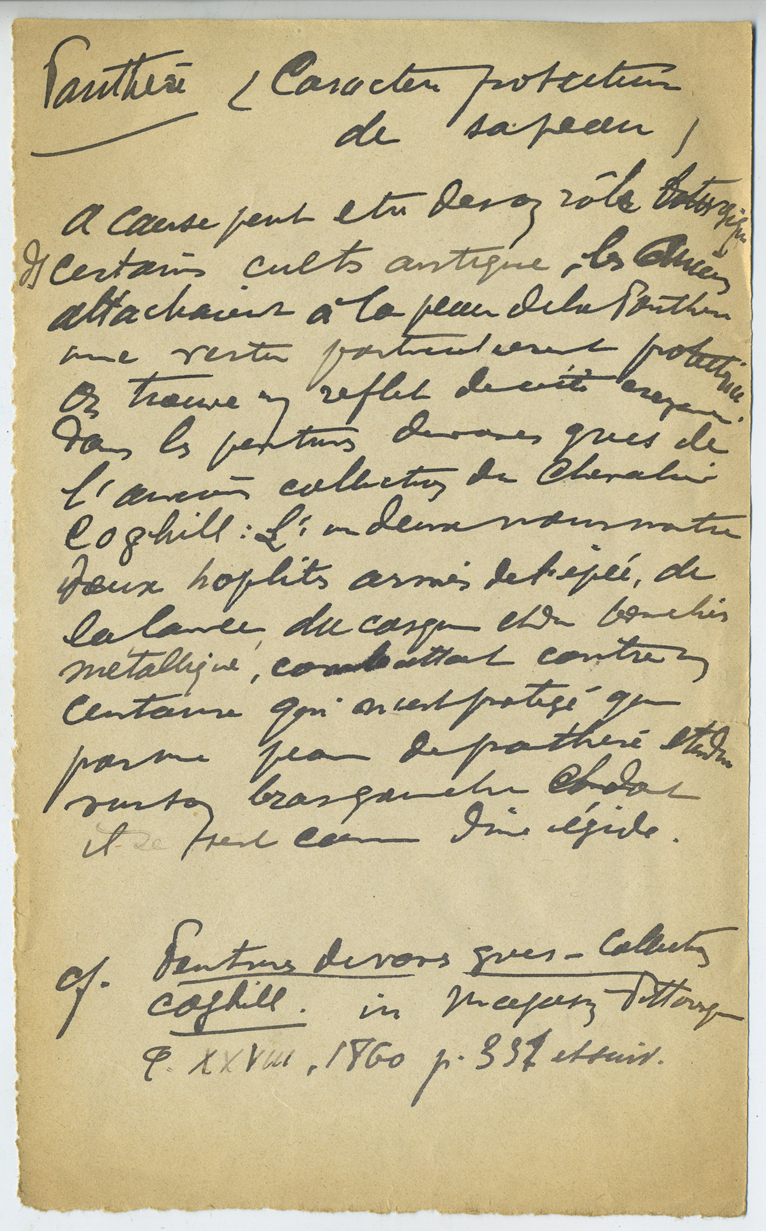 Panthère (Caractère protecteur
de sa peau)
A cause peut etre de son rôle
ds certains cults antique, les Anciens
attachaient à la peau de la Panthère
une vertu particulièrement protectrice.
On trouve un reflet de cette croyance
dans les peintures de vases grecs de
l'ancienne collection du Chevalier
Coghill : L'un deux nous montre
deux hoplites armés de l'épée, de
la lance, du casque et du bouclier
métallique, combattant contre un
centaure qui n'est protégé que
par une peau de panthère étendue
sur son bras gauche et dont
il se sert comme d'une égide.
cf. Peintures de vases grecs – Collection
Coghill. in Magasin Pittoresque
T. XXVIII, 1860 p. 337 et suiv.